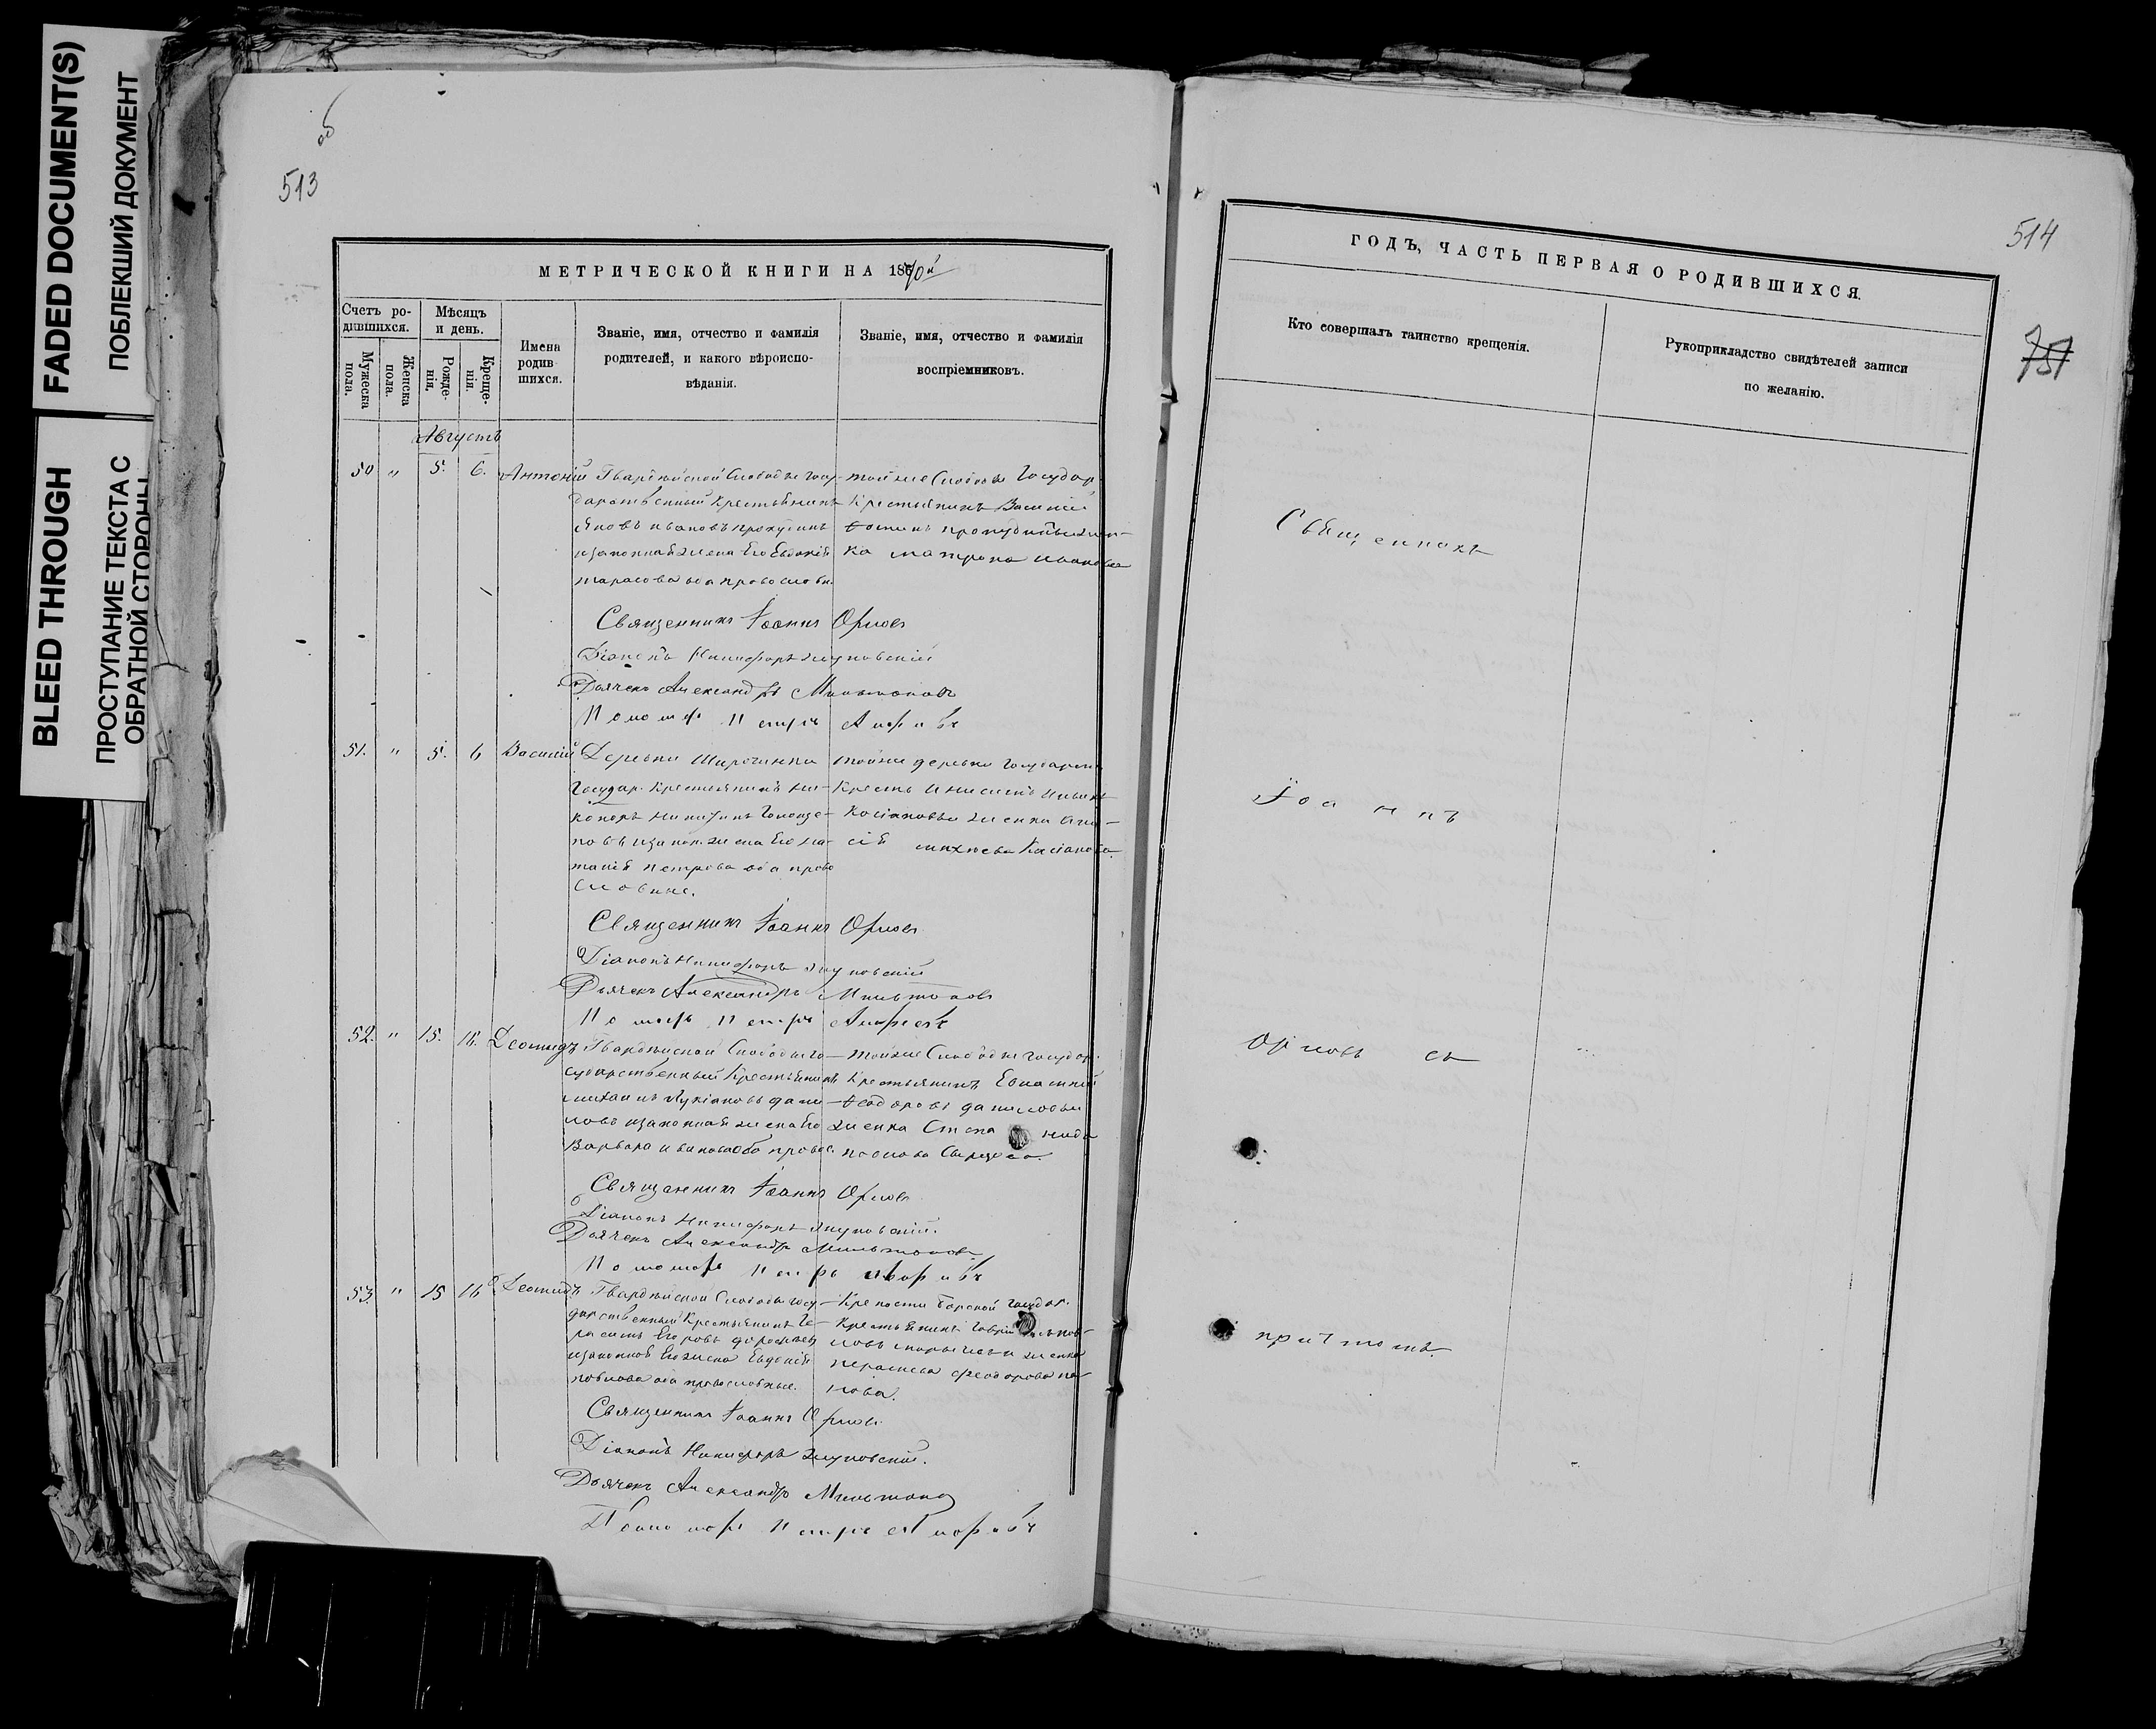 FADED DOCUMENT(S)
ПОБЛЕКШИЙ ДОКУМЕНТ
BLEED THROUGH
ПРОСТУПАНИЕ ТЕКСТА С
ОБРАТНОЙ СТОРОНЫ
об
513
МЕТРИЧЕСКОЙ КНИГИ НА 1870й
Счетъ ро-
дившихся.
Мѣсяцъ
и день.
Мужеска
пола.
Женска
пола.
Рожде-
нія.
Креще-
нія.
Имена
родив-
шихся.
Званіе, имя, отчество и фамилія
родителей, и какого вѣроиспо-
вѣданія.
Званіе, имя, отчество и фамилія
воспріемниковъ.
Августъ
50 " 5. 6. Антоній
Гвардѣйской Слободы Госу-
дарственный Крестьянинъ
Яковъ Ивановъ
изаконная жена Его Евдокія
тарасова оба православн.
тойже Слободы Государ.
Крестьянинъ Василій
жен-
ка матрона иванова
Священникъ Іоаннъ Орловъ
Діаконъ Никифоръ Жуковскій
Дьячекъ Александръ Мильтоновъ
Пономарь Петръ
51. " 5. 6 Василій
Деревни Широчинки
Государ. Крестьянинъ Ни-
коноръ Никитинъ
изакон. жена Его На-
талія петрова оба право
славные.
тойже деревни Государств.
Кресть
женка
Касіанова.
Священникъ Іоаннъ Орловъ
Діаконъ Никифоръ Жуковскій
Дьячекъ Александръ Мильтоновъ
Петръ
52. " 15. 16. Леонидъ
Гвардѣйской Слободы Го-
сударственный Крестьянинъ
михаилъ Лукіановъ дани-
ловъ изаконная жена Его
Варвара иванова оба правос.
тойже Слободы Государ.
Крестьянинъ Евлампій
Ѳеодоровъ даниловъ
женка Степа нида
павлова
Священникъ Іоаннъ Орловъ
Діаконъ Никифоръ Жуковскій.
Дьячекъ Александръ Мильтоновъ
Пономарь Петръ
53. " 15 16 Леонидъ
Гвардѣйской Слободы Госу-
дарственный Крестьянинъ Ге-
расимъ Егоровъ
изаконная Его жена Евдокія
павлова оба православные.
Крепости Борской Государ.
Крестьянинъ Гаврій
женка
Ѳеодорова
Священникъ Іоаннъ Орловъ
Діаконъ Никифоръ Жуковскій.
Дьячекъ Александръ Мильтоновъ
Пономарь Петръ
514
757
ГОДЪ, ЧАСТЬ ПЕРВАЯ О РОДИВШИХСЯ.
Кто совершалъ таинство крещенія.
Рукоприкладство свидѣтелей записи
по желанію.
Священникъ
Іоаннъ
Орловъ съ
причтомъ.